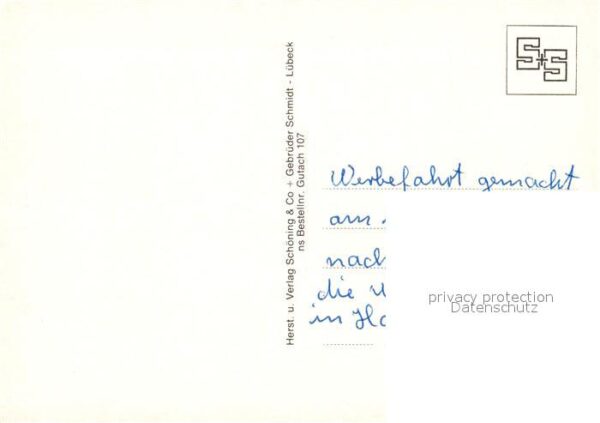 S+S
Herst. u. Verlag Schöning & Co + Gebrüder Schmidt - Lübeck
ns Bestellnr. Gutach 107
Werbefahrt gemacht
am
nach
die
in
privacy protection
Datenschutz